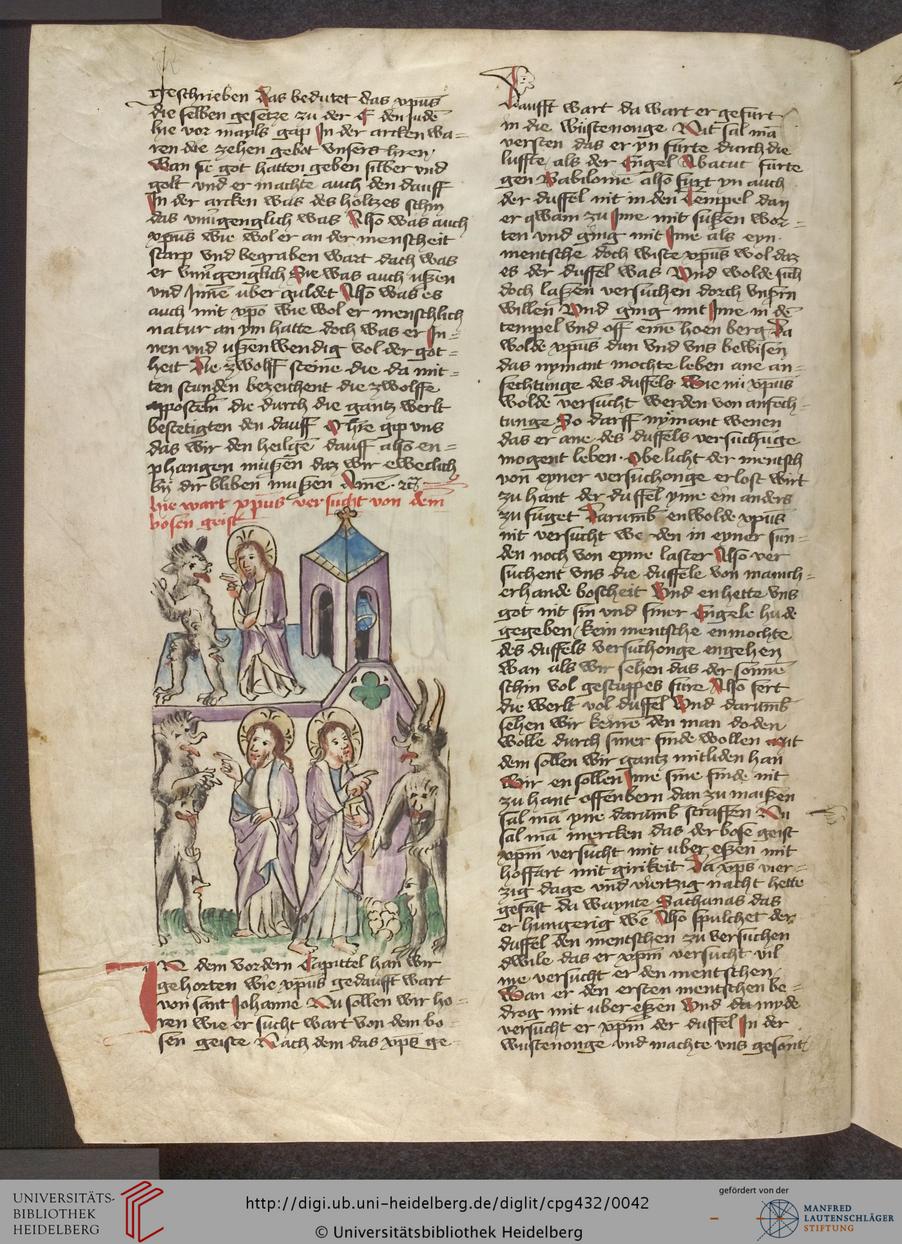 geschrieben Das bedutet das xpus
die selben gesetze zu der E den Jude
hie vor mayls gap In der arcken wa=
ren die zehen gebot unsers hren
Wan sie got hatten geben silber und
golt und er machte auch den dauff
In der arcken was des holtzes schin
das unvirgenglich was Also was auch
xpus wie wol er an der menscheit
starp und begraben wart dach was
er unvirgenglich Sie was auch ußen
und Inne uber guldet Also was es
auch mit xpo wie wol er menschlich
natur an ym hatte doch was er In=
nen und ußenwendig vol der got=
heit Die zwolff steine die da mit=
ten stunden bezeichent die zwolffe
apposteln die durch die gantz werlt
bestetigten den dauff O hre gip uns
das wir den heilge dauff also en=
phangen mußen daz wir eweclich
by dir bliben mußen Ame
hie wart xpus versucht von dem
bosen geist
IN dem vordern Capittel han wir
gehorten wie xpus gedaufft wart
von sant Johanne Nu sollen wir ho=
ren wie er sucht wart von dem bo=
sen geiste Nach dem das xps ge=
daufft wart da wart er gefurt
in die wüstenonge Nit sal ma
versten das er yn furte durch die
luffte als der Engel Abacuc furte
gen Babilonie also furt yn auch
der duffel nit in den Tempel dan
er qwam zu Ime mit sußen wor=
ten und ging mit Ime als eyn
mentsche doch wiste xpus wol daz
es der duffel was Und wolde sich
doch laßen versuchen dorch unsrn
willen Und ging mit Ime in de
tempel und off eine hoen berg Da
wolde xpus dan und uns bewisen
das nymant mochte leben ane an=
fechtunge des duffels Wie nu xpus
wolde versucht werden von anfech=
tunge So darff nymant wenen
das er ane des duffels versuchuge
mogent leben Obe licht der mentsch
von eyner versuchonge erlost wirt
zu hant der duffel yme ein anders
zu fuget Darumb enwolde xpus
nit versucht werden in eyner sun=
den noch von eyme laster Also ver
suchent uns die duffele von manch=
erhande boscheit Und en hette uns
got nit sin und siner Engele hude
gegeben kein mentsche enmochte
des duffels versuchonge engehen
Wan als wir sehen das der sonne
schin vol gestuppes fure Also fert
die werlt vol duffel Und darumb
sehen wir keine den man doden
wolle durch siner sunde wollen mit
dem sollen wir gantz mitliden han
Wir en sollen Ime sine sunde nit
zu hant offenbern dan zu maißen
sal ma yne darumb straffen Nu
sal ma mercken das der bose geist
xpm versucht mit uber eßen mit
hoffart mit girikeit Da xps vier=
zig dage und viertzig nacht hette
gefast da waynte Sathanas das
er hungerig we Also spulchet der
duffel den mentschen zu versuchen
dwile das er xpm versucht vil
me versucht er den mentschen
Wan er den ersten mentschen be=
drog mit uber eßen Und da myde
versucht er xpm der duffel In der
wustenonge und machte uns gesont
UNIVERSITÄTS-
BIBLIOTHEK
HEIDELBERG
http://digi.ub.uni-heidelberg.de/diglit/cpg432/0042
© Universitätsbibliothek Heidelberg
gefördert von der
MANFRED
LAUTENSCHLÄGER
STIFTUNG